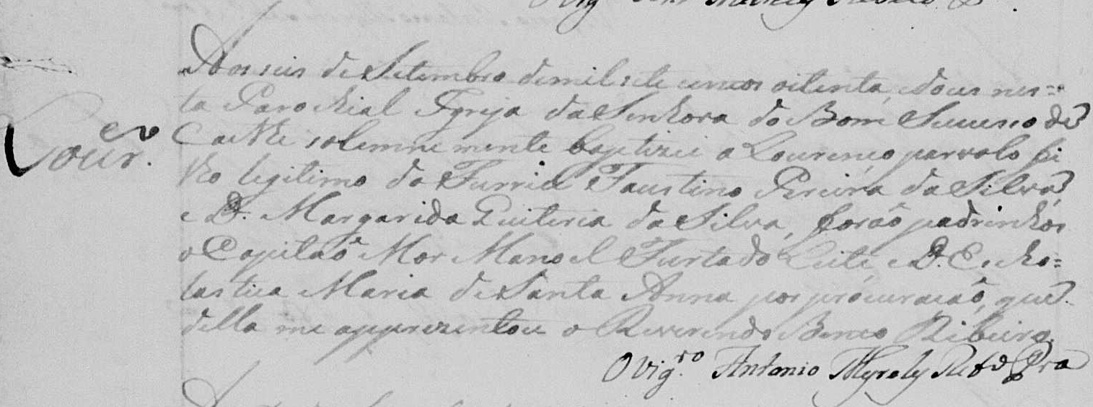 Aos seis de Setembro de mil sete centos oitenta, e dous nes=
ta Parochial Igreja da Senhora do Bom Sucesso de
Caethe solemnemente baptizei a Lourenço parvolo fi
lho legitimo do Furriel Faustino Pereira da Silva
e D. Margarida Quiteria da Silva, forão padrinhos
o Capitaõ Mor Manoel Furtado Leite, e D. Escho=
lastica Maria de Santa Anna por procuração, que
della me apprezentou o Reverendo Bento Ribeiro
Lour.ço
O Vig.ro Antonio